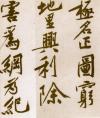 極名正圖窮
地里興利除
害為綱為紀